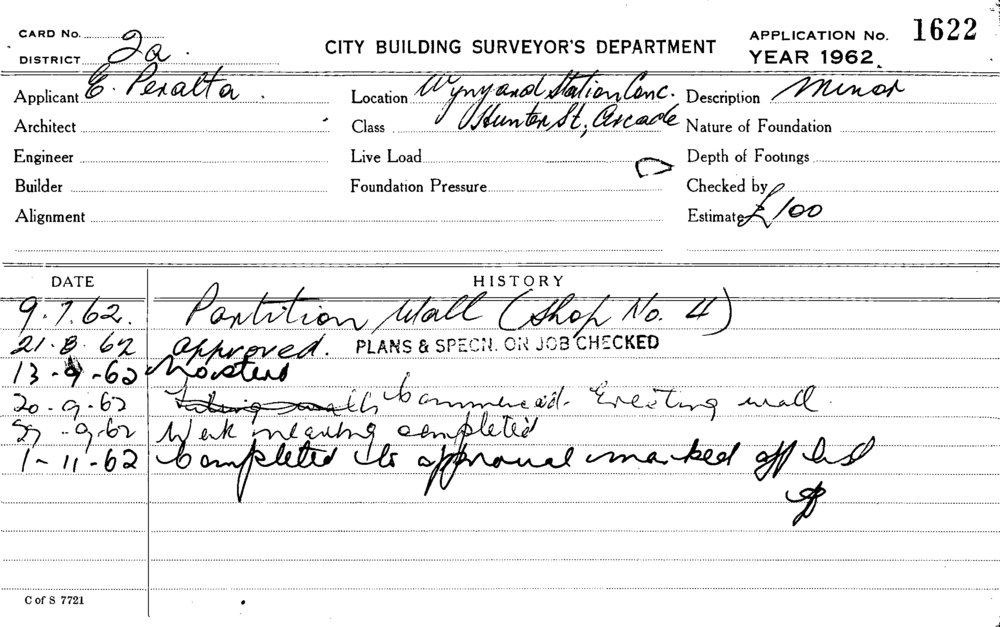 CARD No. 2a
DISTRICT
CITY BUILDING SURVEYOR'S DEPARTMENT
APPLICATION No. 1622
YEAR 1962.
Applicant E. Peralta
Location Wynyard Station Conc.
Description Minor
Architect
Class Hunter St, Arcade
Nature of Foundation
Engineer
Live Load
Depth of Footings
Builder
Foundation Pressure
Checked by
Alignment
Estimate £100
DATE HISTORY
9.7.62. Partition Wall (Shop No. 4)
21.8.62 approved. PLANS & SPECN. ON JOB CHECKED
13-9-62 No start
20-9-62 Commenced. Erecting wall
27-9-62 Work nearing completed
1-11-62 Completed to approval marked off list
C of S 7721